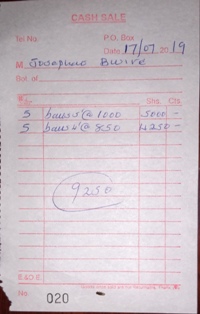 CASH SALE
Tel No. P.O. Box
Date 17/07 2019
M Josephine Bwire
Bot. of
Shs. Cts
5 @ 1000 5000 -
5 @ 850 4250 -
9250
E.&O.E.
No. 020